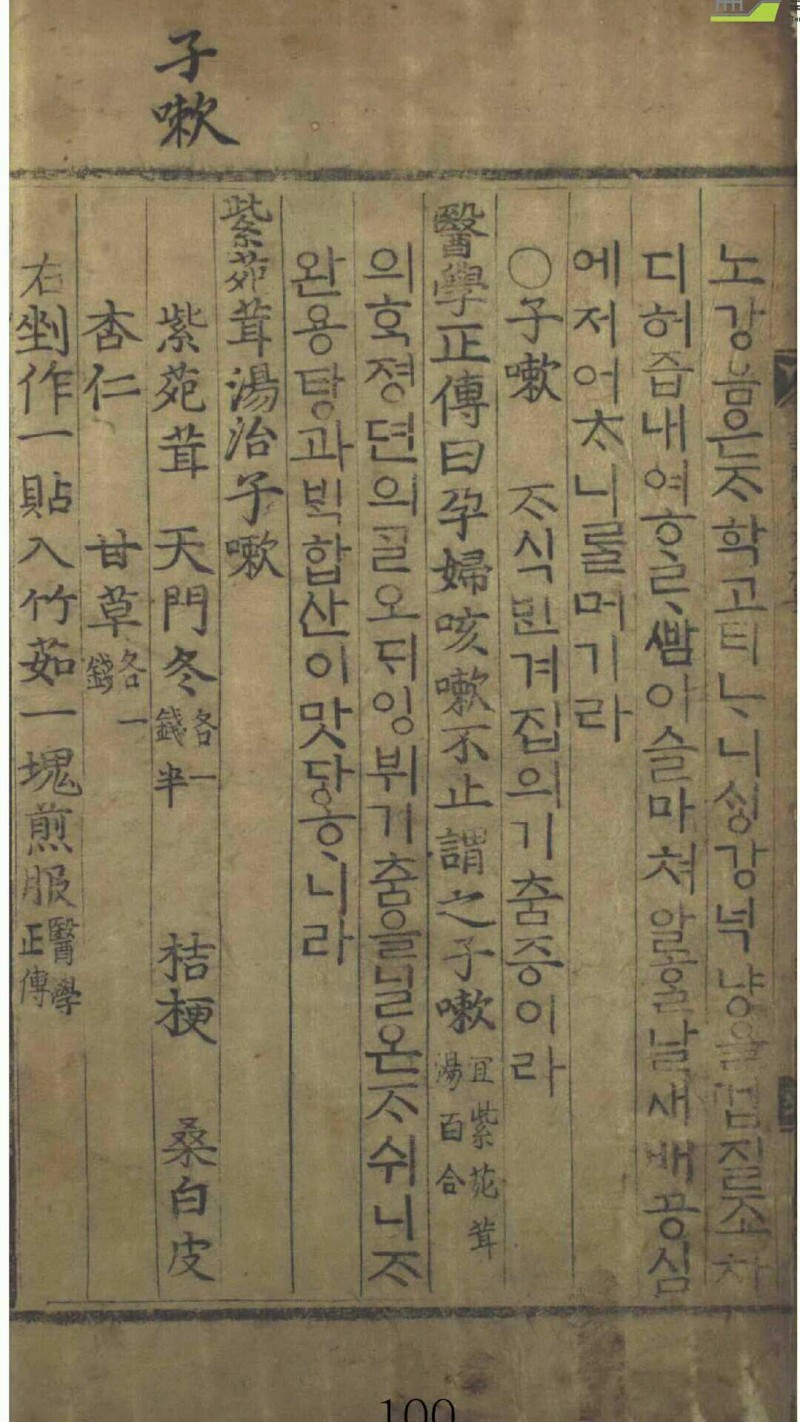 子嗽
노강음은ᄌᆞ학고티ᄂᆞ니ᄉᆡᆼ강넉냥을겁질조차
디허즙내여ᄒᆞᄅᆞᄲᅡᆷ이슬마쳐알ᄒᆞᆯ날새배공심
에저어ᄎᆞ니ᄅᆞᆯ머기라
○子嗽 ᄌᆞ식ᄇᆡᆫ겨집의기춤증이라
醫學正傳曰孕婦咳嗽不止謂之子嗽宜紫菀茸湯百合
의ᄒᆞᆨ졍뎐의ᄀᆞᆯ오ᄃᆡ잉뷔기춤을닐온ᄌᆞ쉬니ᄌᆞ
완용탕과ᄇᆡᆨ합산이맛당ᄒᆞ니라
紫菀茸湯治子嗽
紫菀茸 天門冬各一錢半 桔梗 桑白皮
杏仁 甘草各一錢
右剉作一貼入竹茹一塊煎服醫學正傳
100